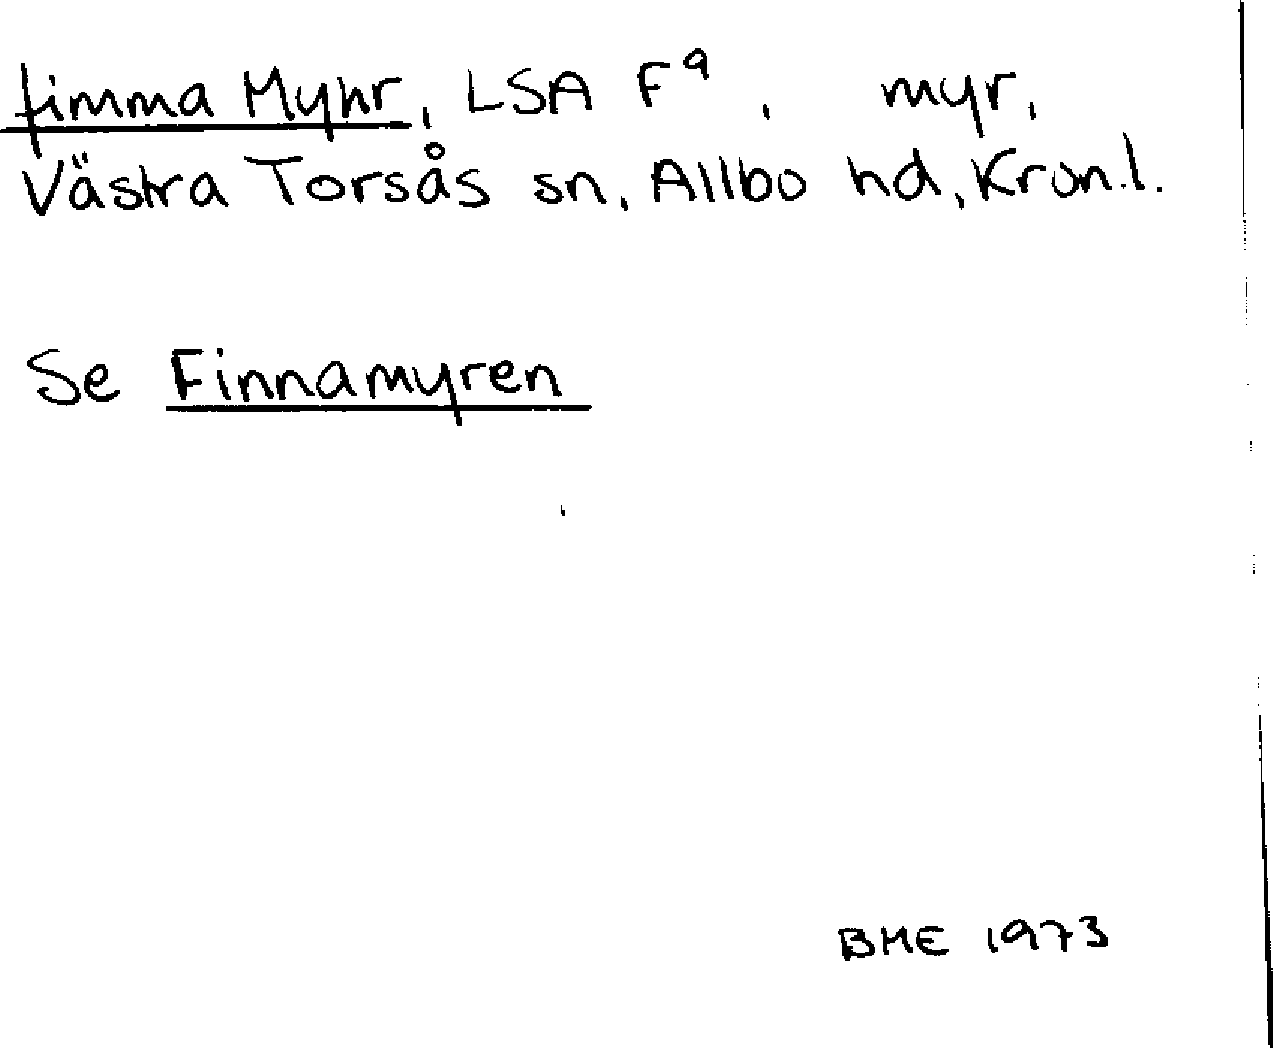 fimma Myhr, LSA F9, myr,
Västra Torsås sn, Allbo hd, Kron.l.
Se Finnamyren
BME 1973